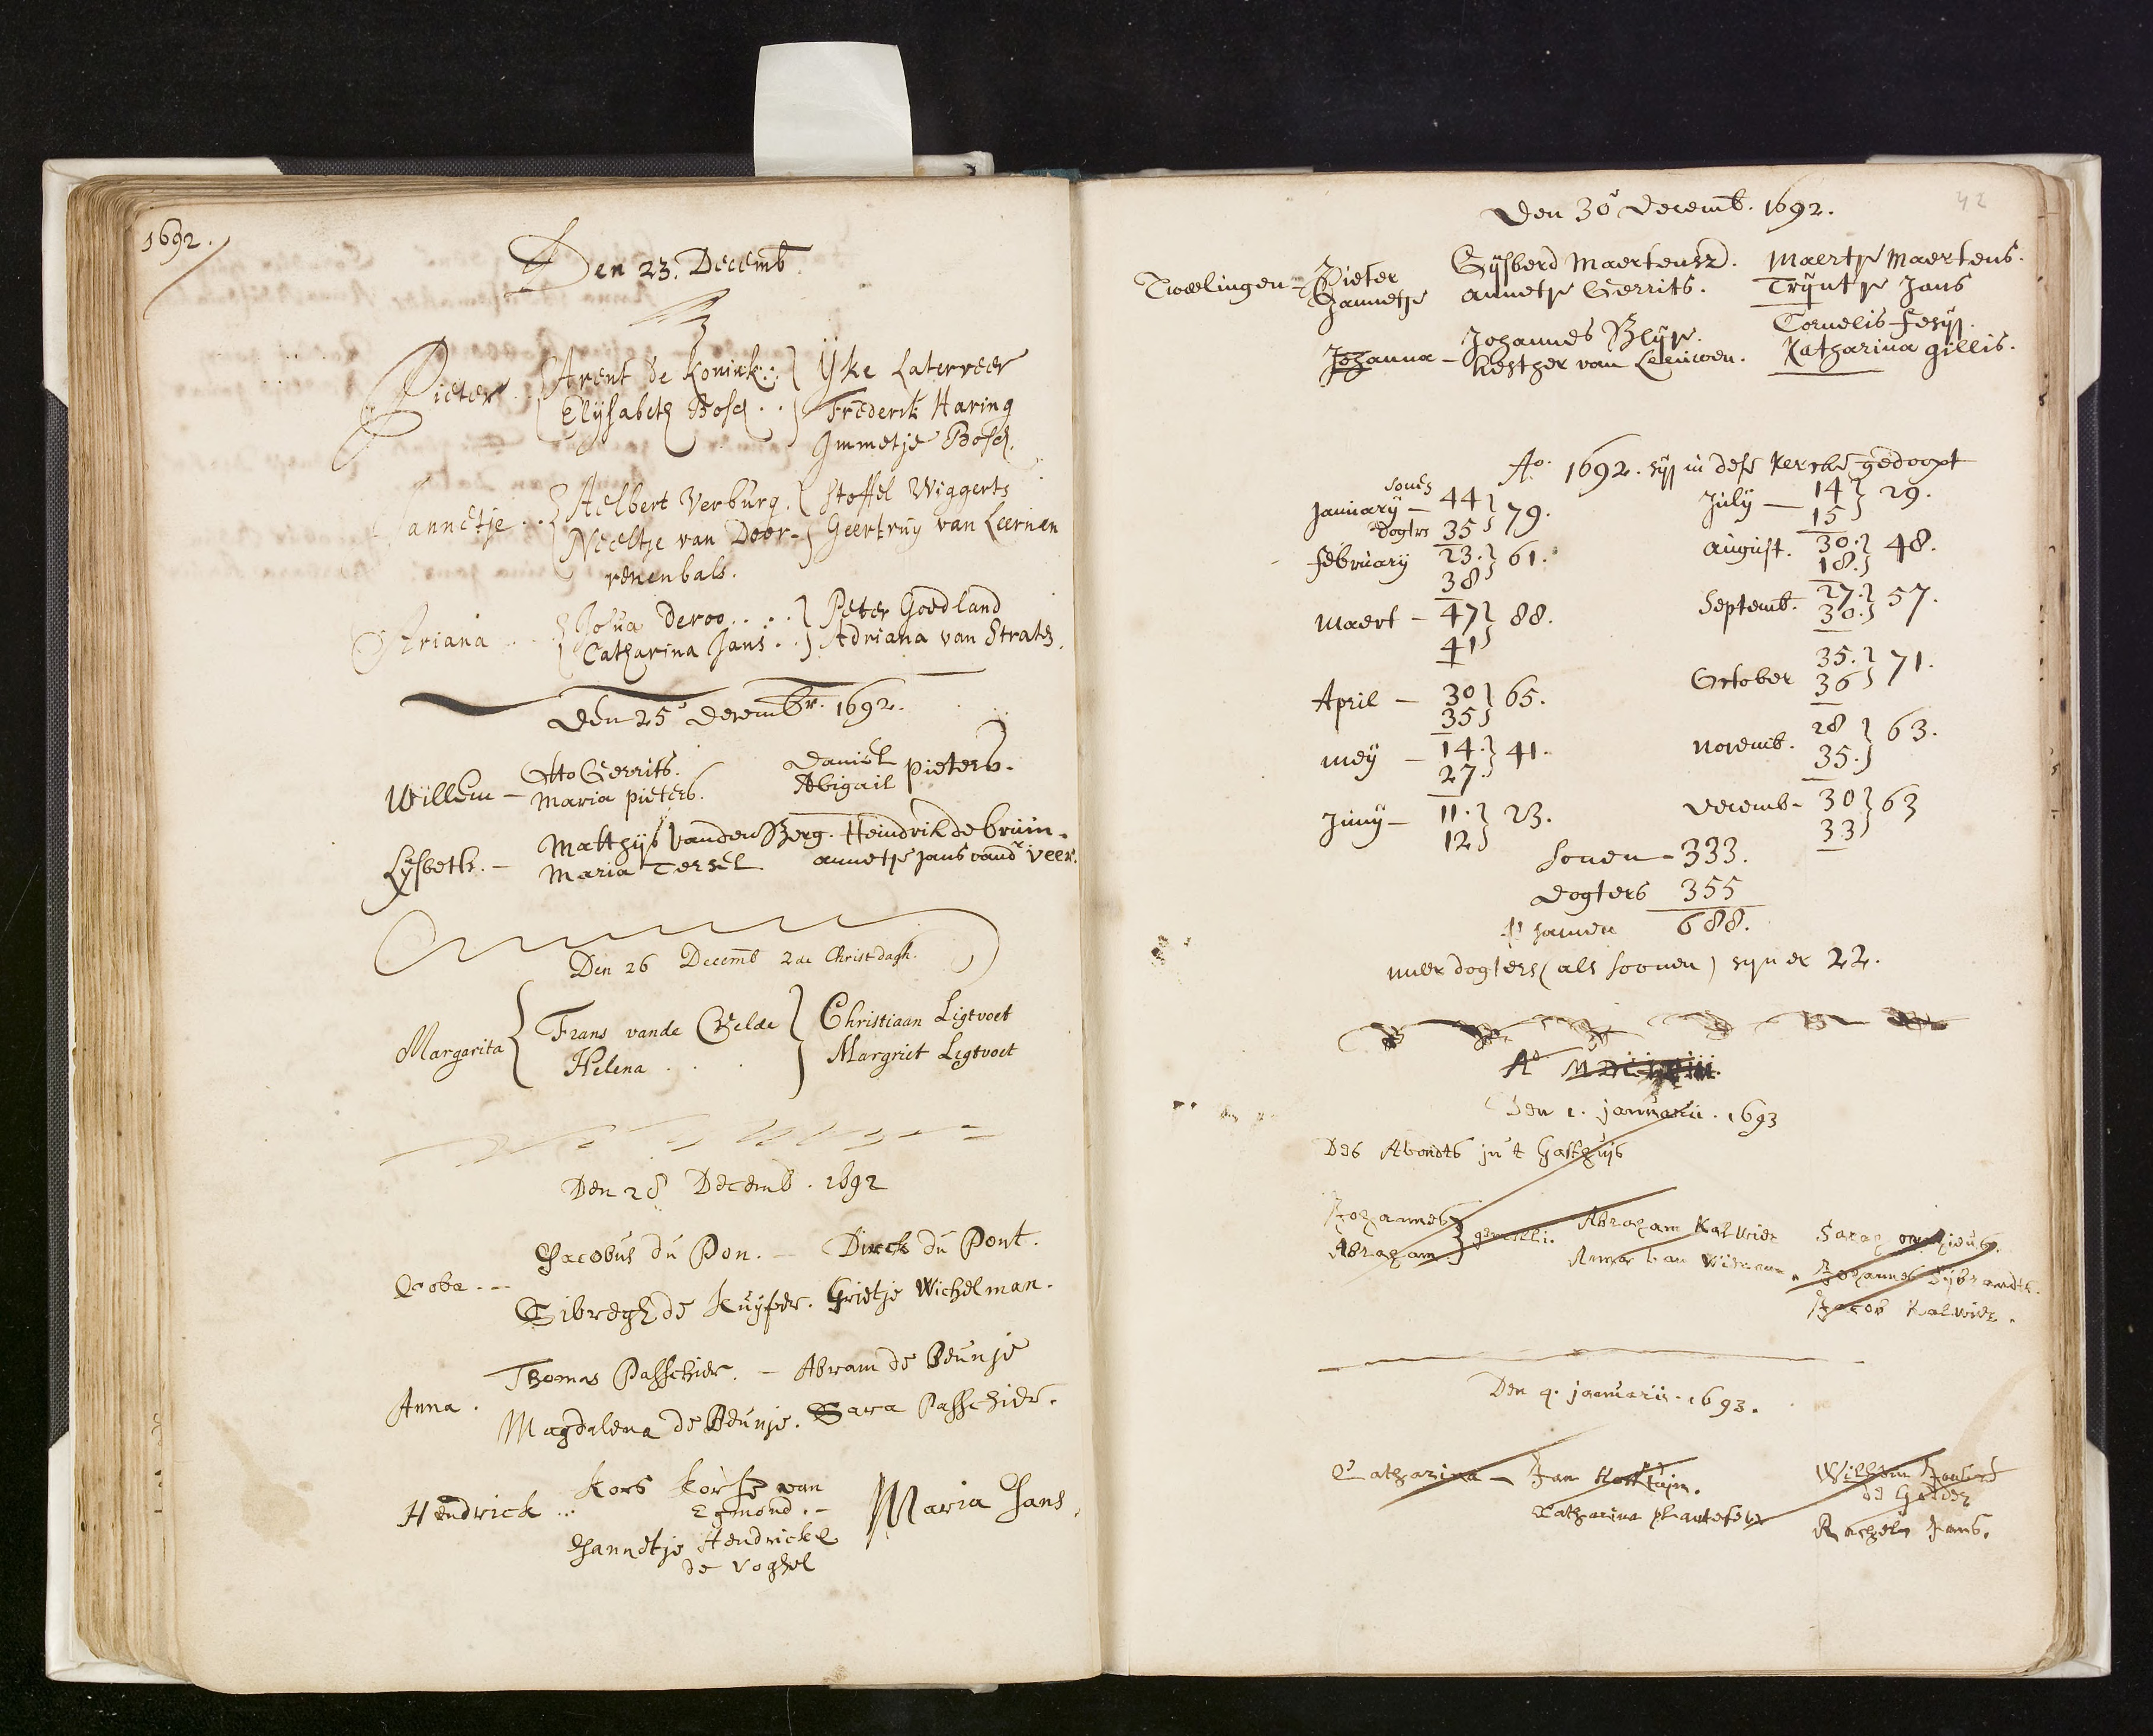 1692.
Den 23. Decemb.
Pieter . . Arent de Konink . . Yke Laterveer
Elijsabeth Bosch . . Frederik Haring
Immetje Bosch.
Jannetje . . Aelbert Verburg. Stoffel Wiggerts
Neeltje van Door- Geertruy van Leernen
renenbals.
Ariana . . Josua deroo . . . . Peter Goedland
Catharina Jans . . Adriana van Straten.
Den 25e Decembr. 1692.
Willem - Otto Gerrits. Daniel Abigail pieters.
Maria pieters.
Lysbeth. - Matthijs vanden Berg. Heindrik de bruin.
Maria Tersel annetje jans vandr veer.
Den 26 Decemb 2de Christdagh.
Margarita Frans vande Velde Christiaan Ligtvoet
Helena . . . Margriet Ligtvoet
Den 28 Decemb. 1692
Jacobus du Pon. - Dirck du Pont.
Coba. -
Sibregh de Kuyper. Grietje Wichelman.
Thomas Passchier. - Abram de Beunje
Anna.
Magdalena de Beunje. Sara Passchier.
Kors Korse van
Hendrick .. Egmond. - Maria Jans.
Jannetje Hendricks
de Voghel
42
Den 30e Decemb. 1692.
Twelingen = Pieter Gijsberd Maertensz. Maertje Maertens.
Jannetje annetje Gerrits. Trijntje Jans
Johannes Blyse. Cornelis
Johanna - Hesther van Leeuwen. Katharina gillis.
Ao. 1692. syn in dese Kercke gedoopt
sones
January - 44 79. July - 14 29.
dogters 35 15
february 23. 61. august. 30. 48.
38 18.
Maert - 47 88. Septemb. 27. 57.
41 30.
April - 30 65. October 35. 71.
35 36
mey - 14. 41. novemb. 28 63.
27. 35.
Juny - 11. 23. decemb - 30 63
12 33
sonen - 333.
dogters 355
t' samen 688.
meer dogters (als soonen) syn er 22.
Ao
Den 1. januarii. 1693
Des Avondts in 't Gasthuijs
Johannes gemelli. Abraham Kalwier Sarah
Abraham Anna van Johannes Sijbrandts.
Jacob Kalwier.
Den 4. januarii. 1693.
Catharina - Jan Willem
Catharina plantefeber de Gelder
Rachel Jans.